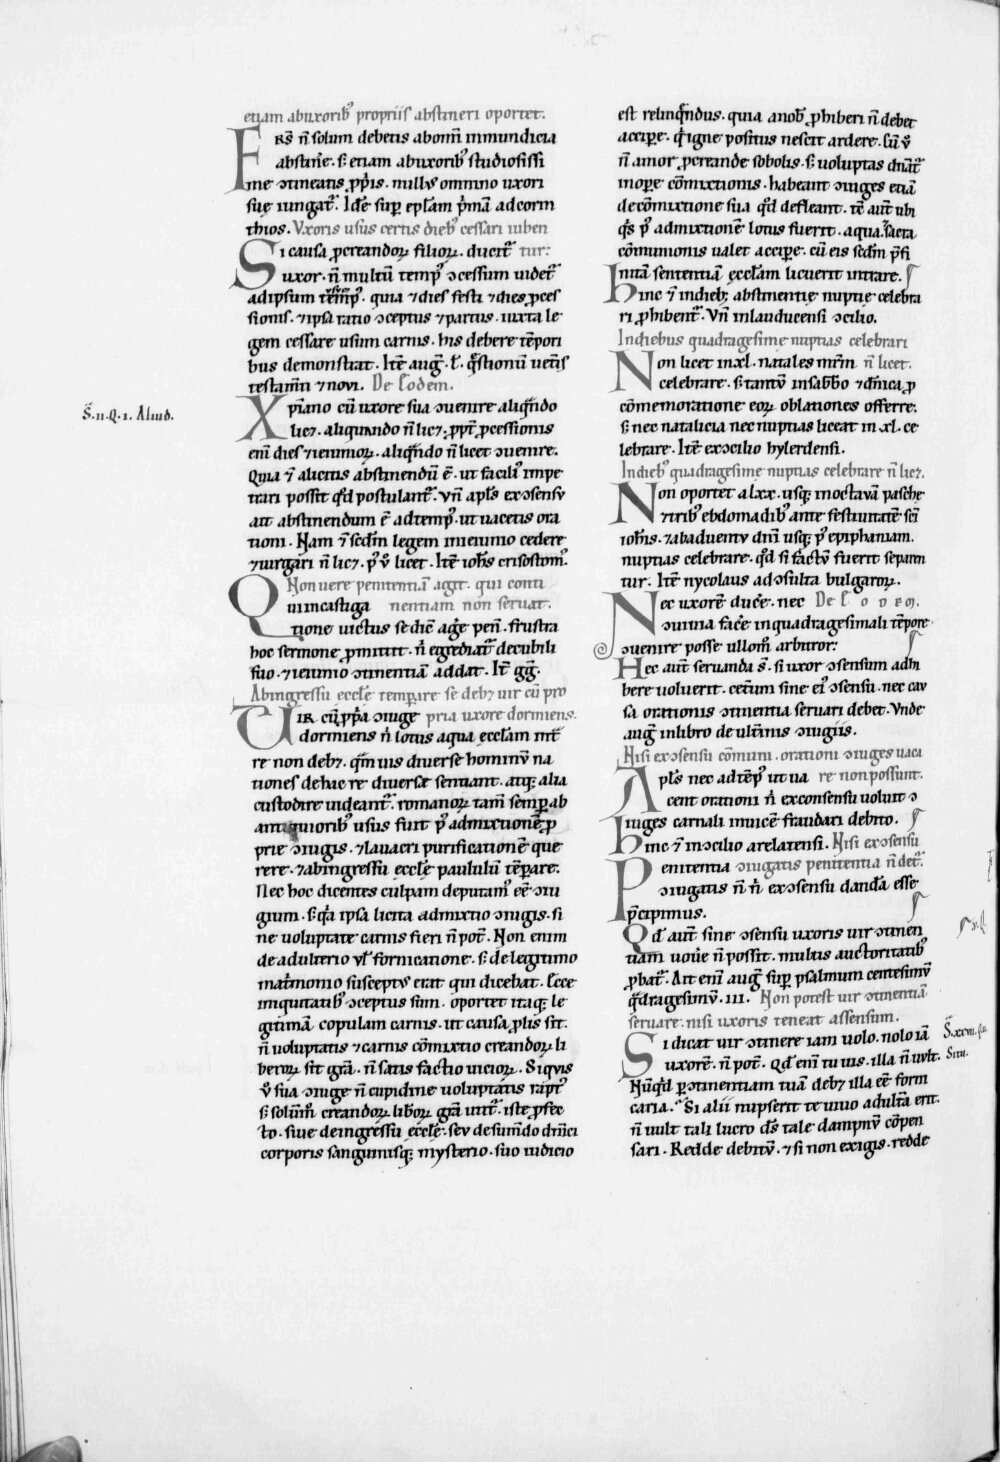 etiam ab uxorib; propriis abstineri oportet.
FRS̄ n̄ solum debetis ab om̄i inmundicia
abstin̄e. s; etiam ab uxorib; studiosissi
me ɔtineatis p̄p̄is. nullus omnino uxori
suę iungat᷑. Idē sup̱ ep̄lam p̄mā ad corin
thios. Vxoris usus certis dieb; cessari iuben
Si causa procreandoꝝ filioꝝ. ducit᷑ tur:
uxor. n̄ multū temp᷒ ɔcessum uidet᷑
ad ipsum usum. quia ⁊ dies festi ⁊ dies ꝓces
sionis. ⁊ ipsa ratio ɔceptus ⁊ partus. iuxta le
gem cessare usum carnis. his debere tēpori
bus demonstrat. Itē auḡ. i. q̄stionū uet̄is
testam̄ti ⁊ noui. De eodem.
Xp̄iano cū uxore sua ɔuenire aliqn̄do
licꝫ. aliquando n̄ licꝫ. ꝓpt̄ ꝓcessionis
eni᷒ dies ⁊ ieiunioꝝ. aliqn̄do n̄ licet ɔuenire.
Quia ⁊ a licitis abstinendū ē. ut facili᷒ impe
trari possit qđ postulant᷑. Vn̄ apl̄s ex ɔsensu
ait abstinendum ē ad temp᷒. ut uacetis ora
tioni. Nam ⁊ scđm legem in ieiunio cedere
⁊ iurgari n̄ licꝫ. p᷒ ṽ licet. Itē ioh̄s crisostom᷒.
Non uere penitentiā agit. qui conti
Qui in castiga nentiam non seruat.
tione uictus se dic̄ aḡe pen̄. frustra
hoc sermone ꝓmittit. n̄ egrediat᷑ de cubili
suo. ⁊ ieiunio ɔtinentiā addat. It̄ gḡ.
Ab ingressu eccl̄e temp̱are se debꝫ uir cū pro
Vir cū ꝓp̄a ɔiuge pria uxore dormiens.
dormiens n̄ lotus aqua eccl̄am int̄
re non debꝫ. Quāuis diuersę hominū na
tiones de hac re diuersę sentiant. atq; alia
custodire uideant᷑. romanoꝝ tam̄ semp̱ ab
antiquiorib; usus fuit p᷒ admixtionē ꝓ
prię ɔiugis. ⁊ lauacri purificationē que
rere. ⁊ ab ingressu eccl̄e paululū tēp̱are.
Nec hoc dicentes culpam deputam᷒ eē ɔiu
gium. s; q̄a ipsa licita admixtio ɔiugis. si
ne uoluptate carnis fieri n̄ pot̄. Non enim
de adulterio ul̄ fornicatione. s; de legitimo
mat̄monio susceptus erat qui dicebat. Ecce
iniquitatib; ɔceptus sum. oportet itaq; le
gitimā copulam carnis. ut causa ꝓlis sit.
n̄ uoluptatis ⁊ carnis cōmixtio creandoꝝ li
beroꝝ sit gr̄a. n̄ satis factio uicioꝝ. Siquis
ṽ sua ɔiuge n̄ cupidine uoluptatis rapt᷒
s; solum̄ creandoꝝ lib̄oꝝ gr̄a utit᷑. iste ꝓfec
to. siue de ingressu eccl̄e. seu de sumēdo dn̄ici
corporis sanguinisq; mysterio. suo iudicio
est relinq̄ndus. quia a nob᷒ ꝓhiberi n̄ debet
accip̱e. q̄ igne positus nescit ardere. Cū ṽ
n̄ amor ꝓcreandę sobolis. s; uoluptas dn̄at᷑
in op̱e cōmixtionis. habeant ɔiuges etiā
de cōmixtione sua qđ defleant. tē aut̄ ubi
q̄s p᷒ admixtionē lotus fuerit. aqua. sacrā
cōmunionis ualet accip̱e. cū eis scđm p̄fi
nitā sententiā eccl̄am licuerit intrare.
Hinc ⁊ in dieb; abstinentię nuptię celebra
ri ꝓhibent᷑. Vn̄ in lauducensi ɔcilio.
In diebus quadragesime nuptias celebrari
Non licet in .xl. natales mr̄m n̄ licet.
celebrare. s; tantū in sabb̄o ⁊ dn̄ica ꝓ
cōmemoratione eoꝝ oblationes offerre.
s; nec natalicia nec nuptias liceat in .xl. ce
lebrare. Itē ex ɔcilio hylerdensi.
In dieb; quadragesime nuptias celebrare n̄ licꝫ.
Non oportet a lxx. usq; in octauā paschę
⁊ trib; ebdomadib; ante festiuitatē sc̄i
ioh̄is. ⁊ ab aduentu dn̄i usq; p᷒ epiphaniam.
nuptias celebrare. qđ si factū fuerit separen
tur. Itē nycolaus ad ɔsulta bulgaroꝝ.
Nec uxorē duc̄e. nec De eodem.
ɔuiuia fac̄e in quadragesimali tēpore
ɔuenire posse ullom̄ arbitror:
Hec aut̄ seruanda s̄. si uxor ɔsensum adhi
bere uoluerit. cet̄um sine ei᷒ ɔsensu. nec cau
sa orationis ɔtinentia seruari debet. Vnde
auḡ in libro de ult̄inis ɔiugiis.
Nisi ex ɔsensu cōmuni. orationi ɔiuges uaca
Apl̄s nec ad tēp᷒ ut ua re non possunt.
cent orationi n̄ ex consensu uoluit ɔ
iuges carnali inuicē fraudari debito.
Hinc ⁊ in ɔcilio arelatensi. Nisi ex ɔsensu
Penitentia ɔiugatis penitentia n̄ det᷑.
ɔiugatis n̄ n̄ ex ɔsensu danda esse
p̄cipimus.
Qđ aut̄ sine ɔsensu uxoris uir ɔtinen
tiam uoue᷑ n̄ possit. multis auctoritatib;
ꝓbat᷑. Ait eni᷒ auḡ sup̱ psalmum centesimū
q̄dragesimū .iii. Non potest uir ɔtinentiā
seruare. nisi uxoris teneat assensum.
Si dicat uir ɔtinere iam uolo. nolo iā
uxorē. n̄ pot̄. Qđ eni᷒ tu uis. illa n̄ uult.
Nūqđ p̱ ɔtinentiam tuā debꝫ illa eē forni
caria. Si alii nupserit te uiuo adult̄a erit.
n̄ uult tali lucro dꝰ tale dampnū cōpen
sari. Redde debitū. ⁊ si non exigis. redde
S̄. 11. Q. 1. Aliud.